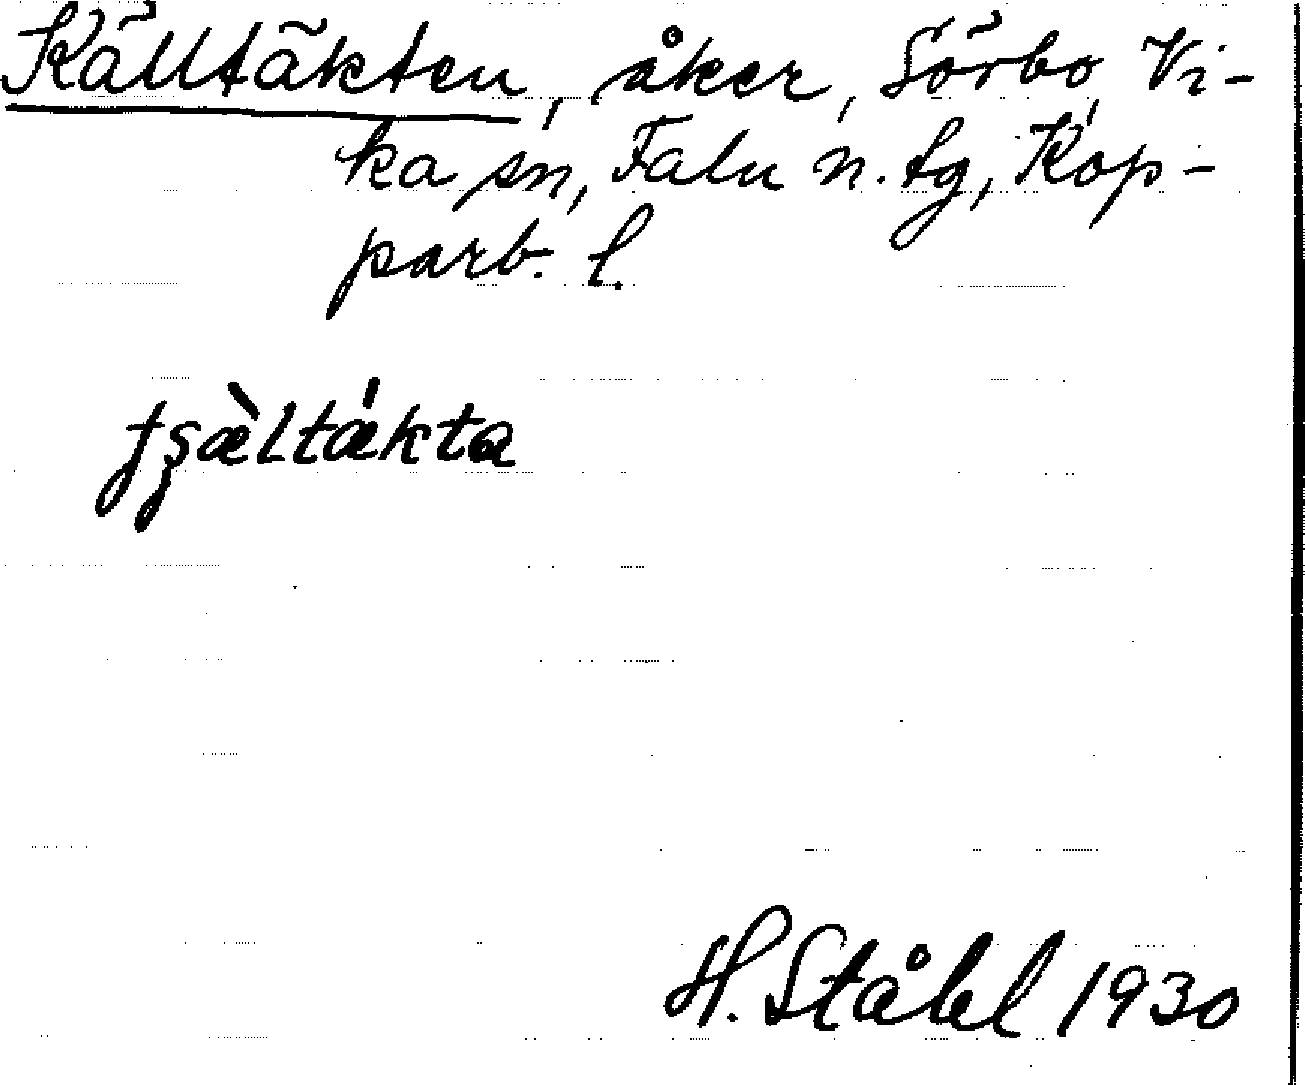 Källtäkten, åker, Sörbo, Vi-
ka sn, Falu n. tg, Kop-
parb. l.
tʂæ̀ltǽkta
H. Ståhl 1930